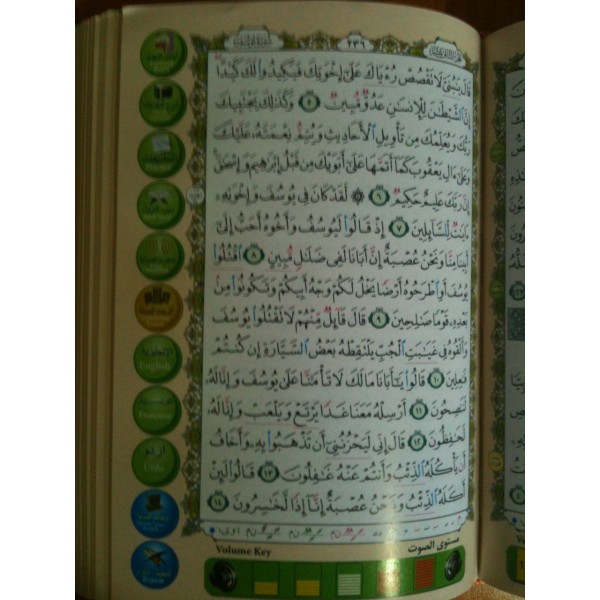 ٢٣٦
قَالَ يَٰبُنَىَّ لَا تَقْصُصْ رُءْيَاكَ عَلَىٰٓ إِخْوَتِكَ فَيَكِيدُوا۟ لَكَ كَيْدًا
إِنَّ ٱلشَّيْطَٰنَ لِلْإِنسَٰنِ عَدُوٌّ مُّبِينٌ ٥ وَكَذَٰلِكَ يَجْتَبِيكَ
رَبُّكَ وَيُعَلِّمُكَ مِن تَأْوِيلِ ٱلْأَحَادِيثِ وَيُتِمُّ نِعْمَتَهُۥ عَلَيْكَ
وَعَلَىٰٓ ءَالِ يَعْقُوبَ كَمَآ أَتَمَّهَا عَلَىٰٓ أَبَوَيْكَ مِن قَبْلُ إِبْرَٰهِيمَ وَإِسْحَٰقَ
إِنَّ رَبَّكَ عَلِيمٌ حَكِيمٌ ٦ ۞ لَّقَدْ كَانَ فِى يُوسُفَ وَإِخْوَتِهِۦٓ
ءَايَٰتٌ لِّلسَّآئِلِينَ ٧ إِذْ قَالُوا۟ لَيُوسُفُ وَأَخُوهُ أَحَبُّ إِلَىٰٓ
أَبِينَا مِنَّا وَنَحْنُ عُصْبَةٌ إِنَّ أَبَانَا لَفِى ضَلَٰلٍ مُّبِينٍ ٨ ٱقْتُلُوا۟
يُوسُفَ أَوِ ٱطْرَحُوهُ أَرْضًا يَخْلُ لَكُمْ وَجْهُ أَبِيكُمْ وَتَكُونُوا۟ مِنۢ
بَعْدِهِۦ قَوْمًا صَٰلِحِينَ ٩ قَالَ قَآئِلٌ مِّنْهُمْ لَا تَقْتُلُوا۟ يُوسُفَ
وَأَلْقُوهُ فِى غَيَٰبَتِ ٱلْجُبِّ يَلْتَقِطْهُ بَعْضُ ٱلسَّيَّارَةِ إِن كُنتُمْ
فَٰعِلِينَ ١٠ قَالُوا۟ يَٰٓأَبَانَا مَا لَكَ لَا تَأْمَ۫نَّا عَلَىٰ يُوسُفَ وَإِنَّا لَهُۥ
لَنَٰصِحُونَ ١١ أَرْسِلْهُ مَعَنَا غَدًا يَرْتَعْ وَيَلْعَبْ وَإِنَّا لَهُۥ
لَحَٰفِظُونَ ١٢ قَالَ إِنِّى لَيَحْزُنُنِىٓ أَن تَذْهَبُوا۟ بِهِۦ وَأَخَافُ
أَن يَأْكُلَهُ ٱلذِّئْبُ وَأَنتُمْ عَنْهُ غَٰفِلُونَ ١٣ قَالُوا۟ لَئِنْ
أَكَلَهُ ٱلذِّئْبُ وَنَحْنُ عُصْبَةٌ إِنَّآ إِذًا لَّخَٰسِرُونَ ١٤
الإنجليزية
English
اردو
Urdu
Volume Key
مستوى الصوت